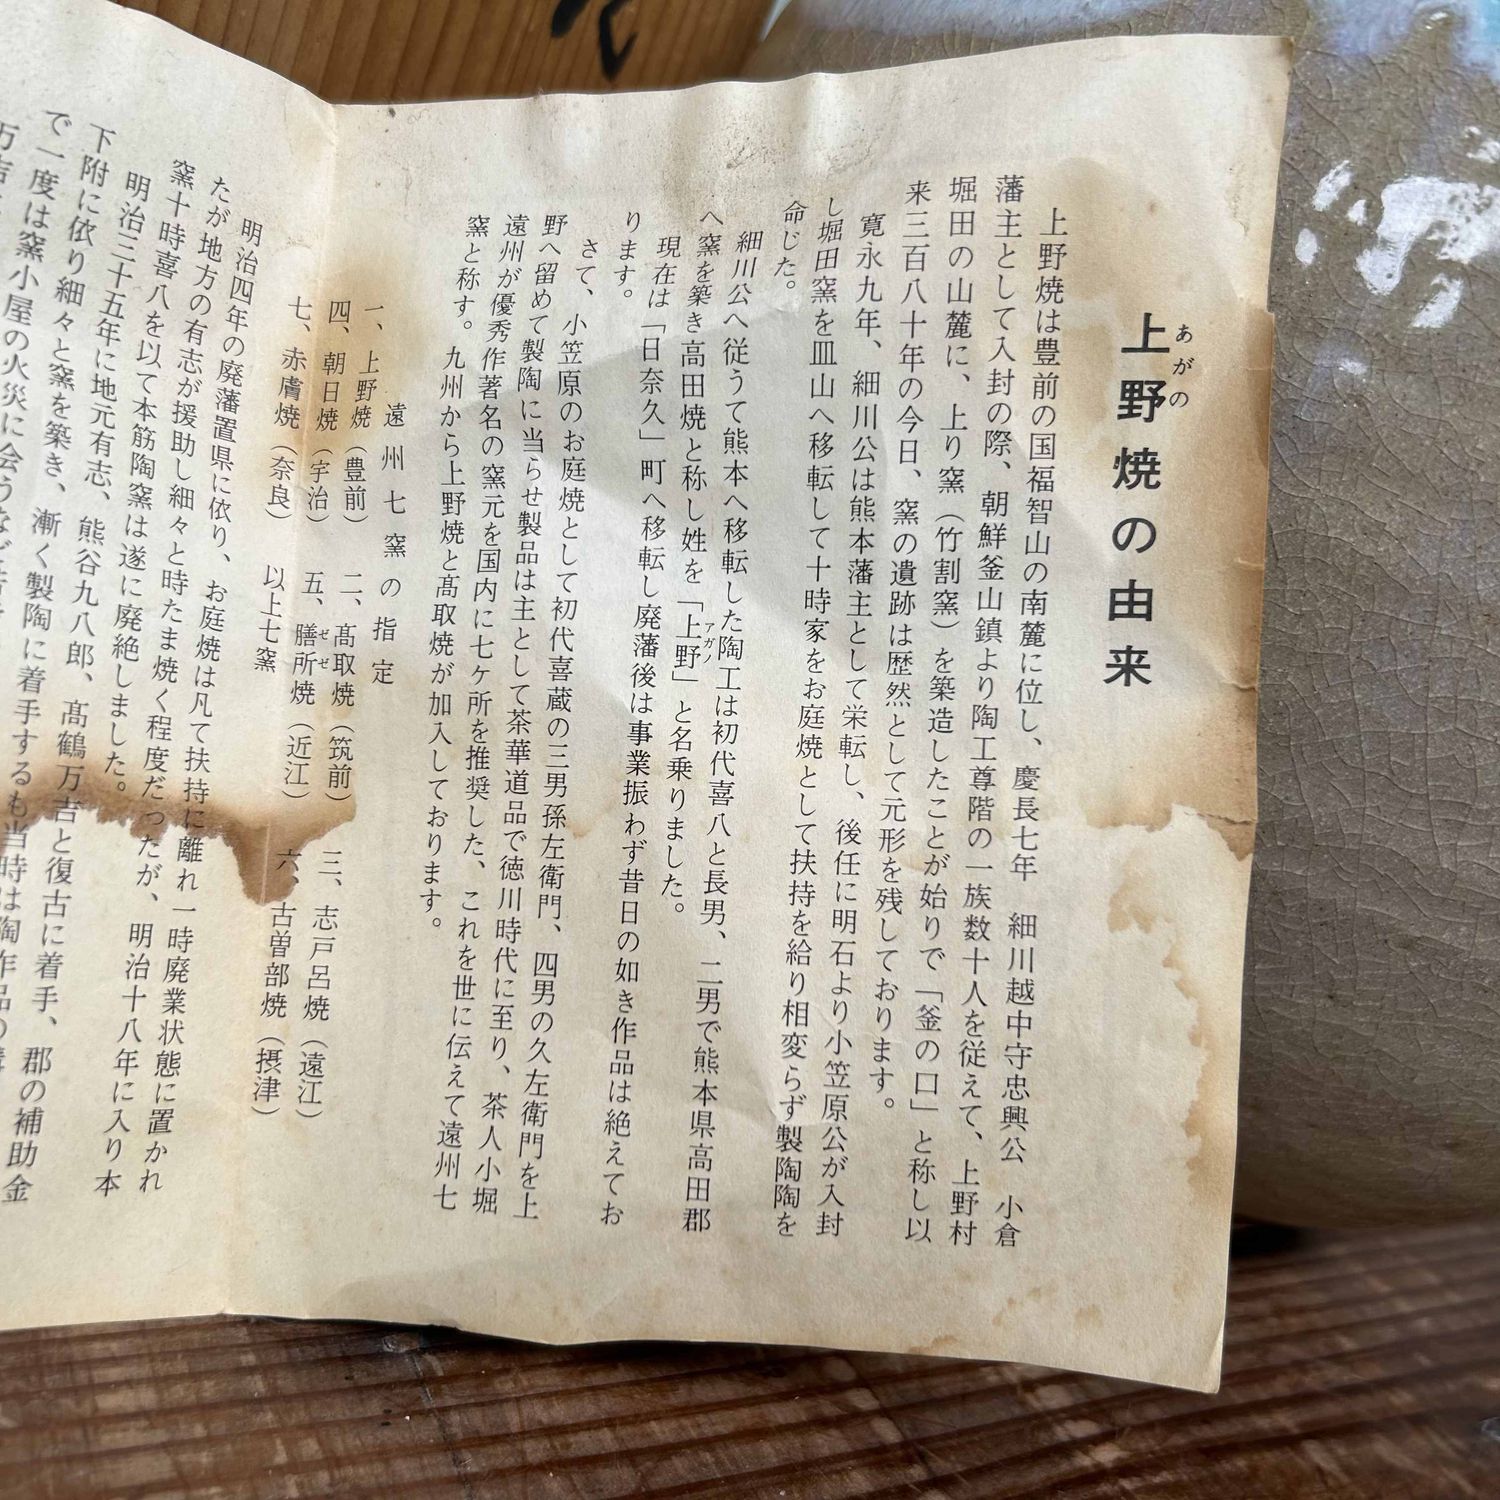 上野焼の由来
あがの
上野焼は豊前の国福智山の南麓に位し、慶長七年 細川越中守忠興公 小倉
藩主として入封の際、朝鮮釜山鎮より陶工尊階の一族数十人を従えて、上野村
堀田の山麓に、上り窯（竹割窯）を築造したことが始りで「釜の口」と称し以
来三百八十年の今日、窯の遺跡は歴然として元形を残しております。
寛永九年、細川公は熊本藩主として栄転し、後任に明石より小笠原公が入封
し堀田窯を皿山へ移転して十時家をお庭焼として扶持を給り相変らず製陶陶を
命じた。
細川公へ従うて熊本へ移転した陶工は初代喜八と長男、二男で熊本県高田郡
へ窯を築き高田焼と称し姓を「上野」と名乗りました。
アガノ
現在は「日奈久」町へ移転し廃藩後は事業振わず昔日の如き作品は絶えてお
ります。
さて、小笠原のお庭焼として初代喜蔵の三男孫左衛門、四男の久左衛門を上
野へ留めて製陶に当らせ製品は主として茶華道品で徳川時代に至り、茶人小堀
遠州が優秀作著名の窯元を国内に七ケ所を推奨した、これを世に伝えて遠州七
窯と称す。九州から上野焼と髙取焼が加入しております。
遠州七窯の指定
一、上野焼（豊前） 二、髙取焼（筑前） 三、志戸呂焼（遠江）
四、朝日焼（宇治） 五、膳所焼（近江） 六、古曽部焼（摂津）
ゼゼ
七、赤膚焼（奈良） 以上七窯
明治四年の廃藩置県に依り、お庭焼は凡て扶持に離れ一時廃業状態に置かれ
たが地方の有志が援助し細々と時たま焼く程度だったが、明治十八年に入り本
窯十時喜八を以て本筋陶窯は遂に廃絶しました。
明治三十五年に地元有志、熊谷九八郎、髙鶴万吉と復古に着手、郡の補助金
下附に依り細々と窯を築き、漸く製陶に着手するも当時は陶作品の
で一度は窯小屋の火災に会うなど
万吉